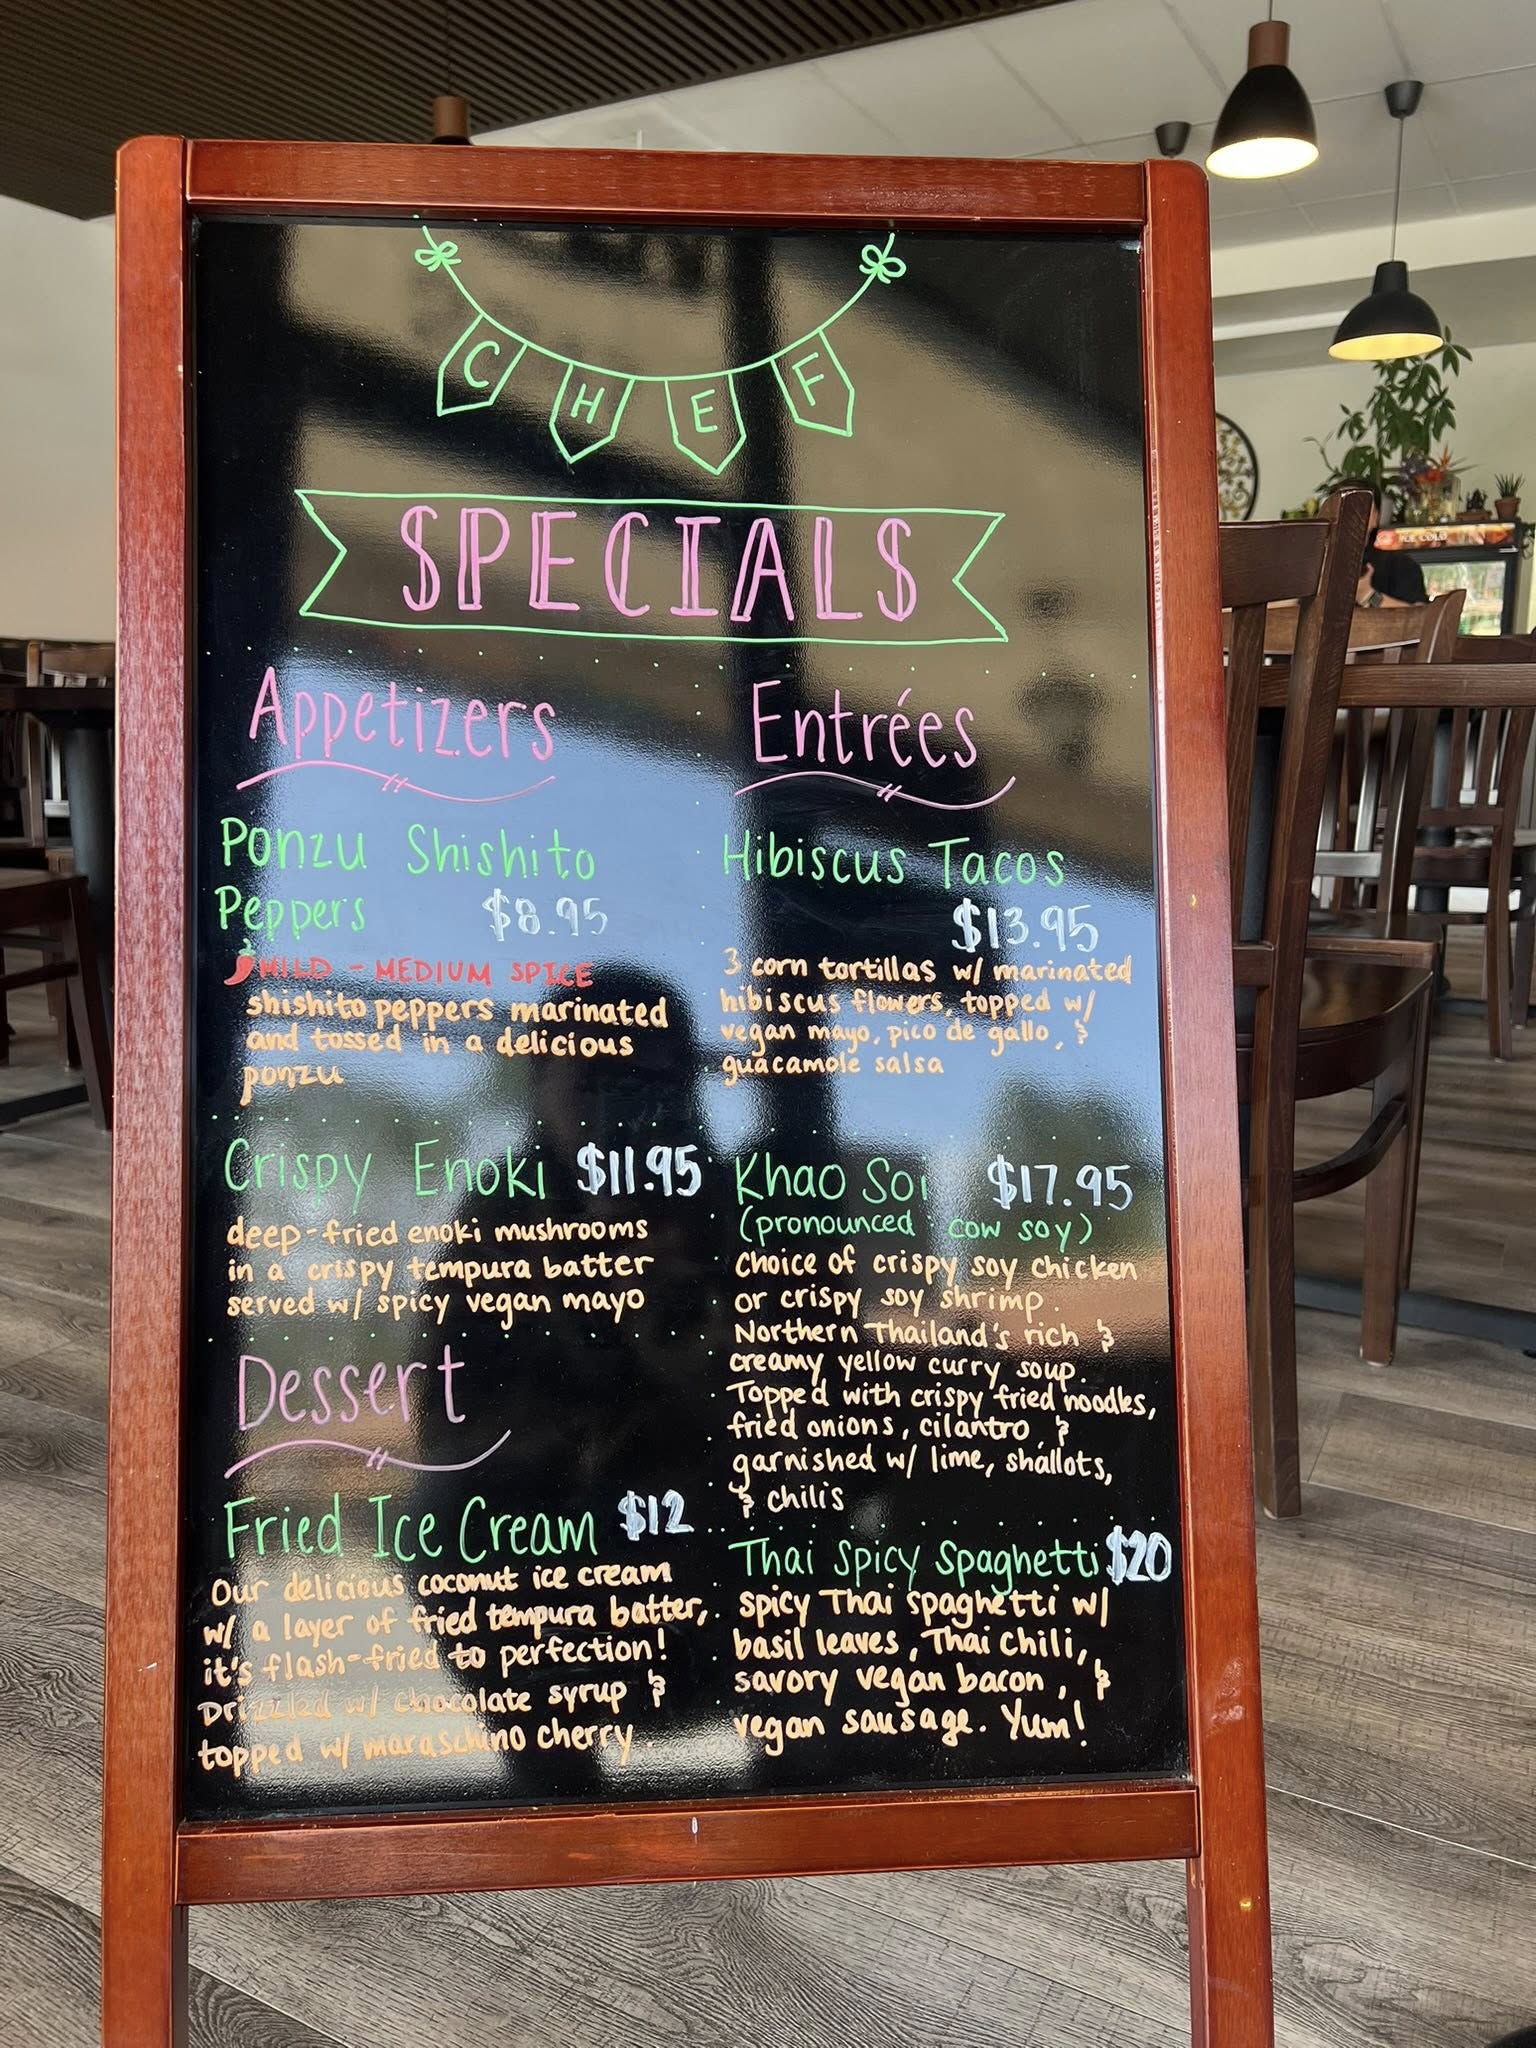 CHEF
SPECIALS
Appetizers
Ponzu Shishito
Peppers $8.95
MILD - MEDIUM SPICE
shishito peppers marinated
and tossed in a delicious
ponzu
Crispy Enoki $11.95
deep-fried enoki mushrooms
in a crispy tempura batter
served w/ spicy vegan mayo
Dessert
Fried Ice Cream $12
Our delicious coconut ice cream
w/ a layer of fried tempura batter,
it's flash-fried to perfection!
Drizzled w/ chocolate syrup &
topped w/ maraschino cherry.
Entrées
Hibiscus Tacos
$13.95
3 corn tortillas w/ marinated
hibiscus flowers, topped w/
vegan mayo, pico de gallo, &
guacamole salsa
Khao Soi $17.95
(pronounced: cow soy)
Choice of crispy soy chicken
or crispy soy shrimp.
Northern Thailand's rich &
creamy yellow curry soup.
Topped with crispy fried noodles,
fried onions, cilantro &
garnished w/ lime, shallots,
& chilis
Thai Spicy Spaghetti $20
spicy Thai spaghetti w/
basil leaves, Thai chili,
savory vegan bacon, &
vegan sausage. Yum!
ICE COLD